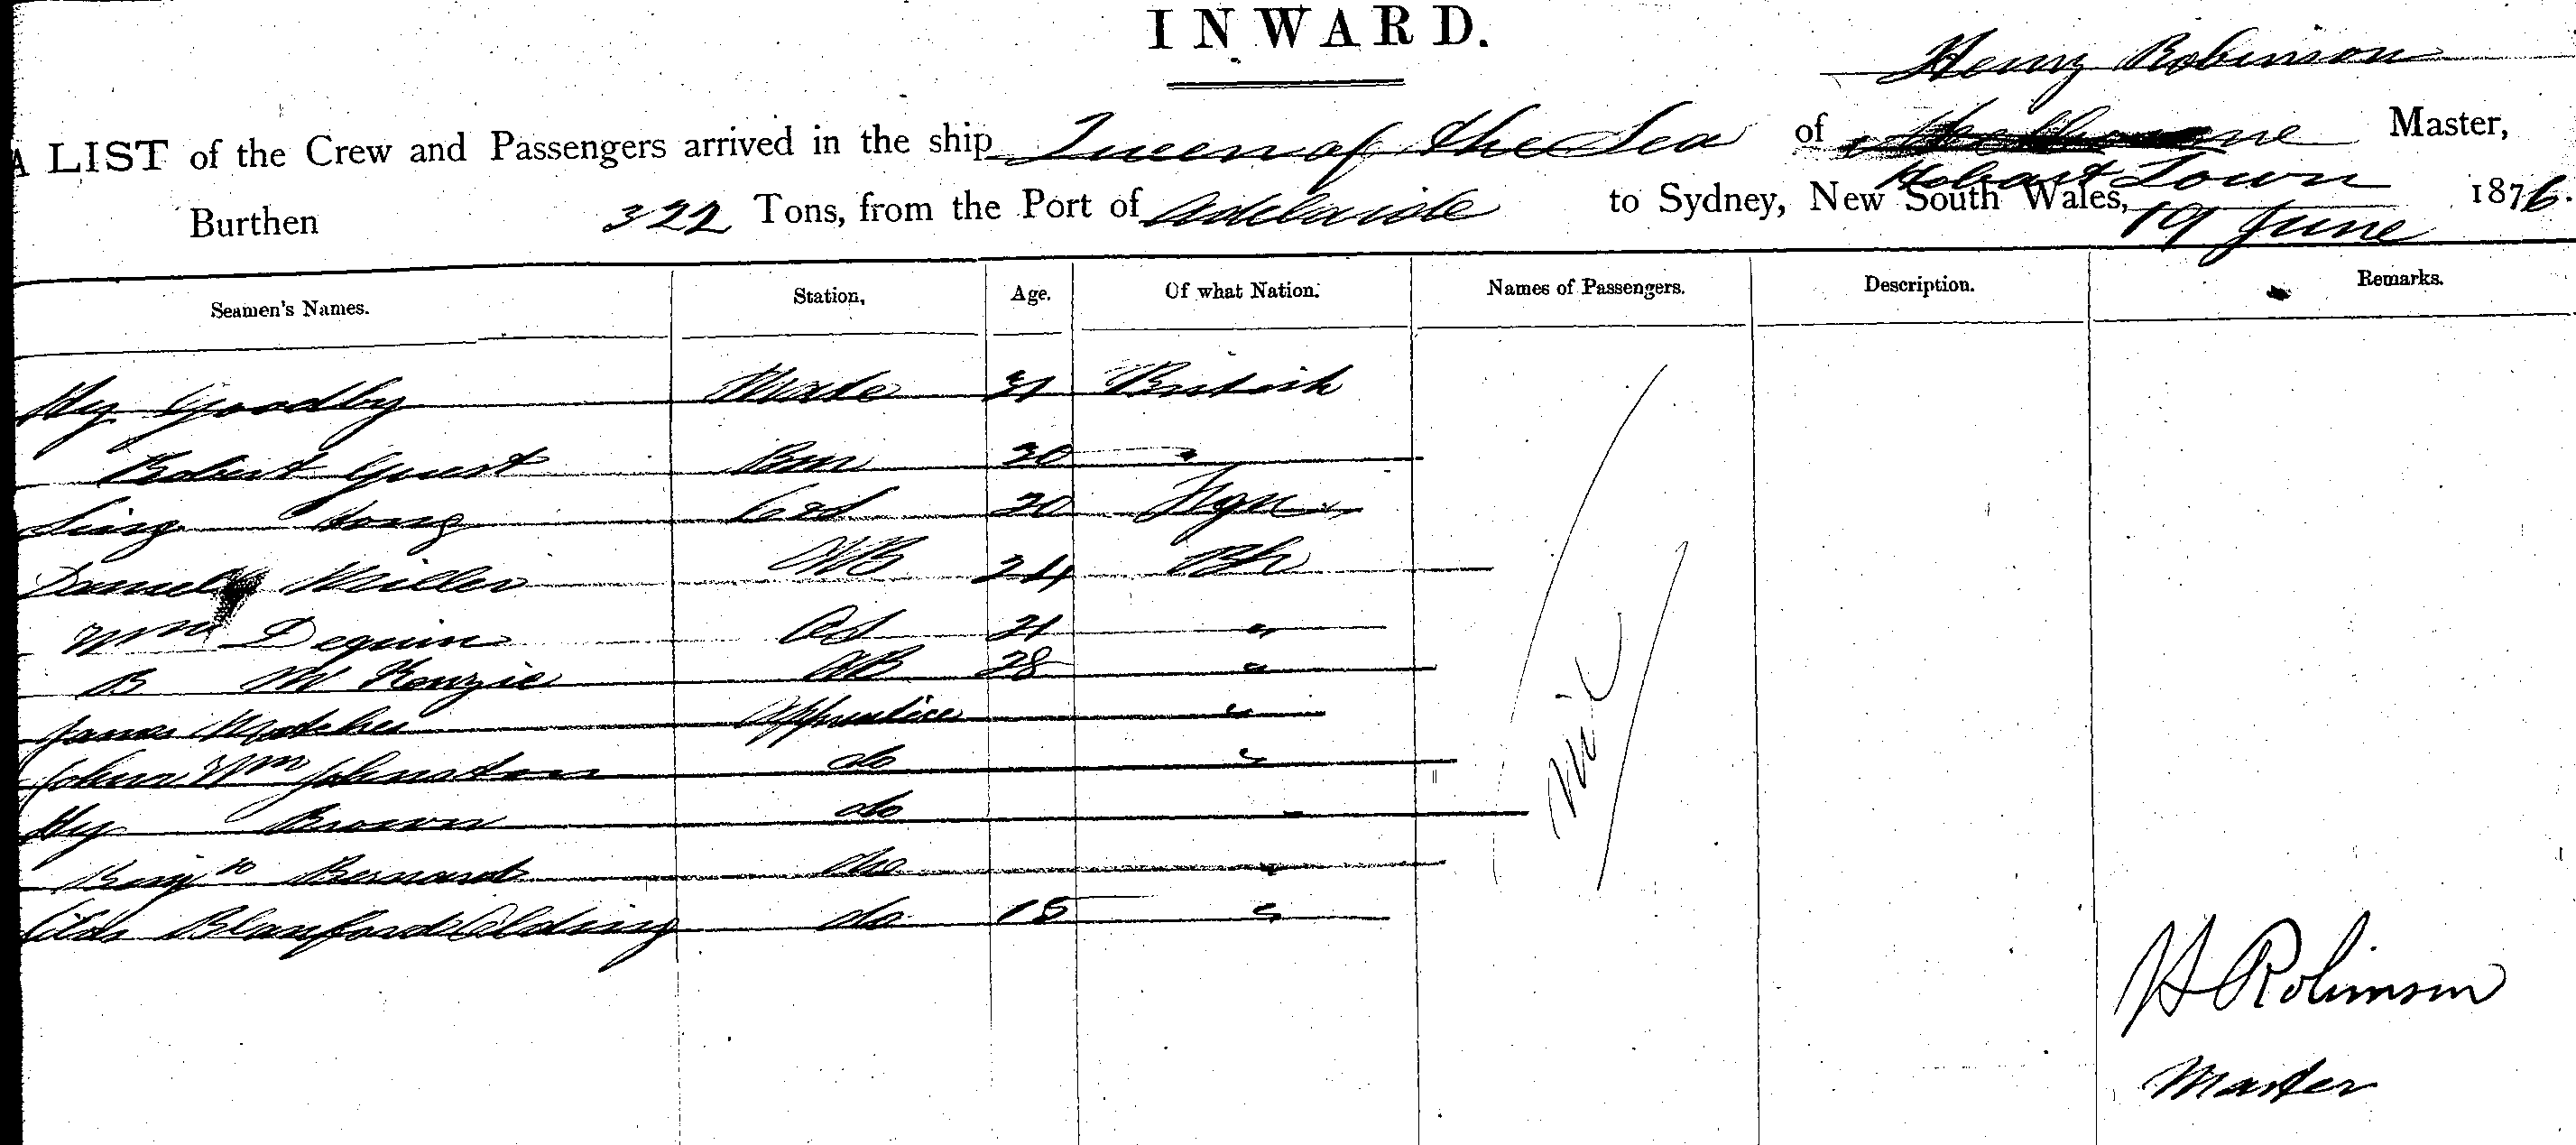 INWARD.
Henry Robinson
A LIST of the Crew and Passengers arrived in the ship Queen of the Sea of Melbourne Master,
Hobart Town
Burthen 322 Tons, from the Port of Adelaide to Sydney, New South Wales, 19 June 1876.
Seamen's Names. Station, Age. Of what Nation. Names of Passengers. Description. Remarks.
Hy Goodby Mate 31 British
Robert Guest Bm 20 "
Sing Hong C&S 20 Fgn
Daniel Miller AB 24 Bh
Wm Dequin Od 21 "
B McKenzie AB 28 "
James Apprentice "
John Wm Johnston do "
Hy Brown do "
Benjn Bernard do "
Chas Blanford Alding do 18 "
Nil
H Robinson
Master